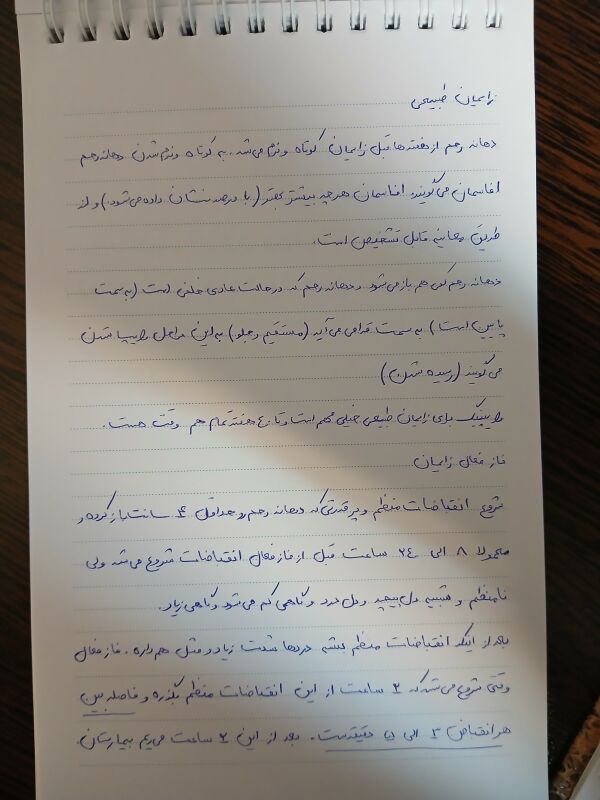 زایمان طبیعی
دهانه رحم از هفته ها قبل زایمان کوتاه و نرم می شد. به کوتاه و نرم شدن دهانه رحم
افاسمان می گویند. افاسمان هرچه بیشتر بهتر (با درصد نشان داده می شود) و از
طریق معاینه قابل تشخیص است.
دهانه رحم کمی هم باز می شود و دهانه رحم که در حالت عادی خلفی است (به سمت
پایین است) به سمت قدامی می آید (مستقیم و جلو) به این مراحل رایپ شدن
می گویند (رسیده شدن)
رایپینگ برای زایمان طبیعی خیلی مهم است و تا ۴۰ هفته تمام هم وقت هست.
فاز فعال زایمان
شروع انقباضات منظم و پر قدرتی که دهانه رحم رو حداقل ۴ سانت باز کرده و
معمولا ۸ الی ۲۴ ساعت قبل از فاز فعال انقباضات شروع می شد ولی
نامنظم و شبیه دل پیچه و دل درد و گاهی کم می شود و گاهی زیاد.
بعد از اینکه انقباضات منظم میشه دردها شدت زیاد و مثل هم داره. فاز فعال
وقتی شروع می شد که ۲ ساعت از این انقباضات منظم بگذره و فاصله بین
هر انقباض ۳ الی ۵ دقیقه ست. بعد از این ۲ ساعت می ریم بیمارستان.